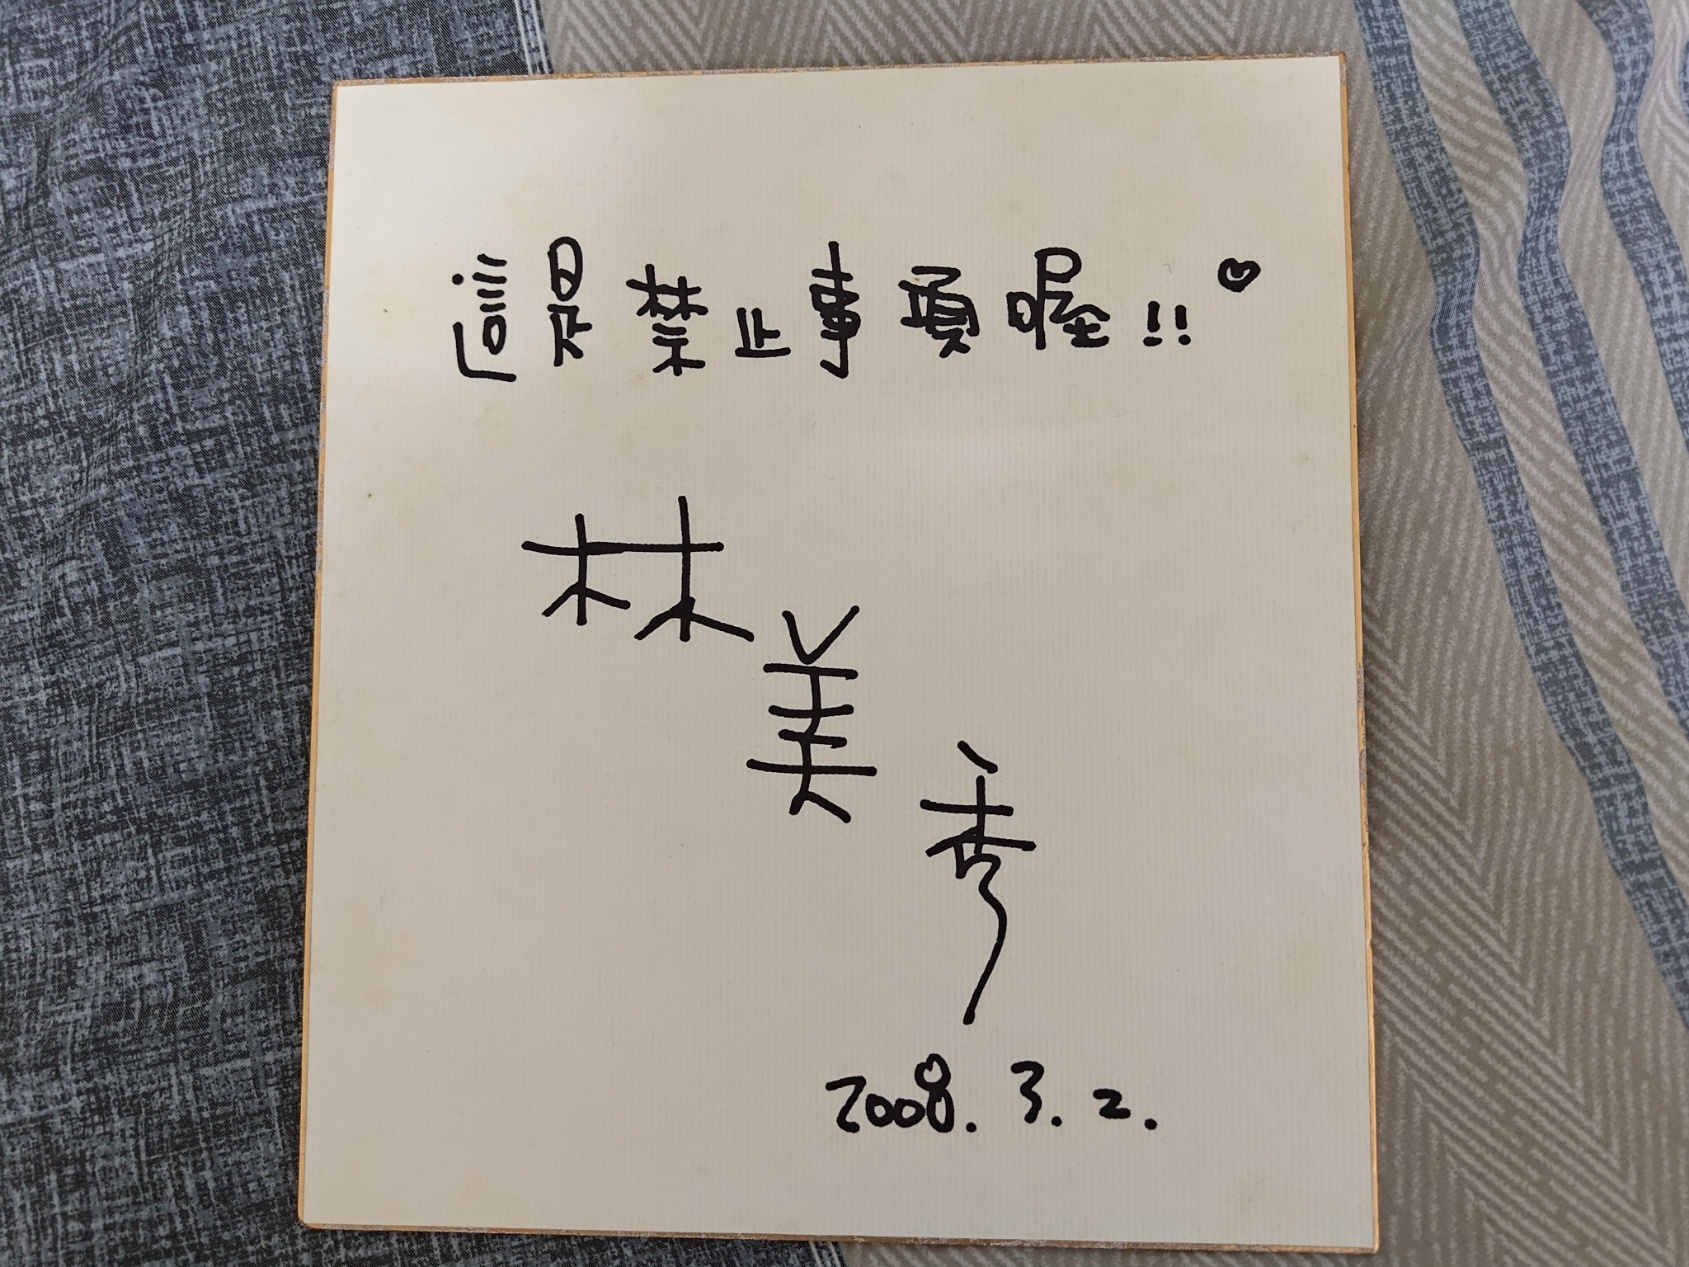 這是禁止事項喔!!♡
林美秀
2008.3.2.